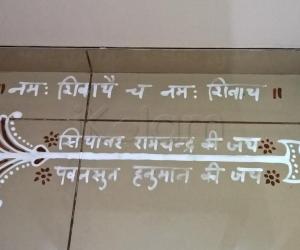 ॥ नमः शिवायै च नमः शिवाय ॥
सियावर रामचन्द्र की जय
पवनसुत हनुमान की जय